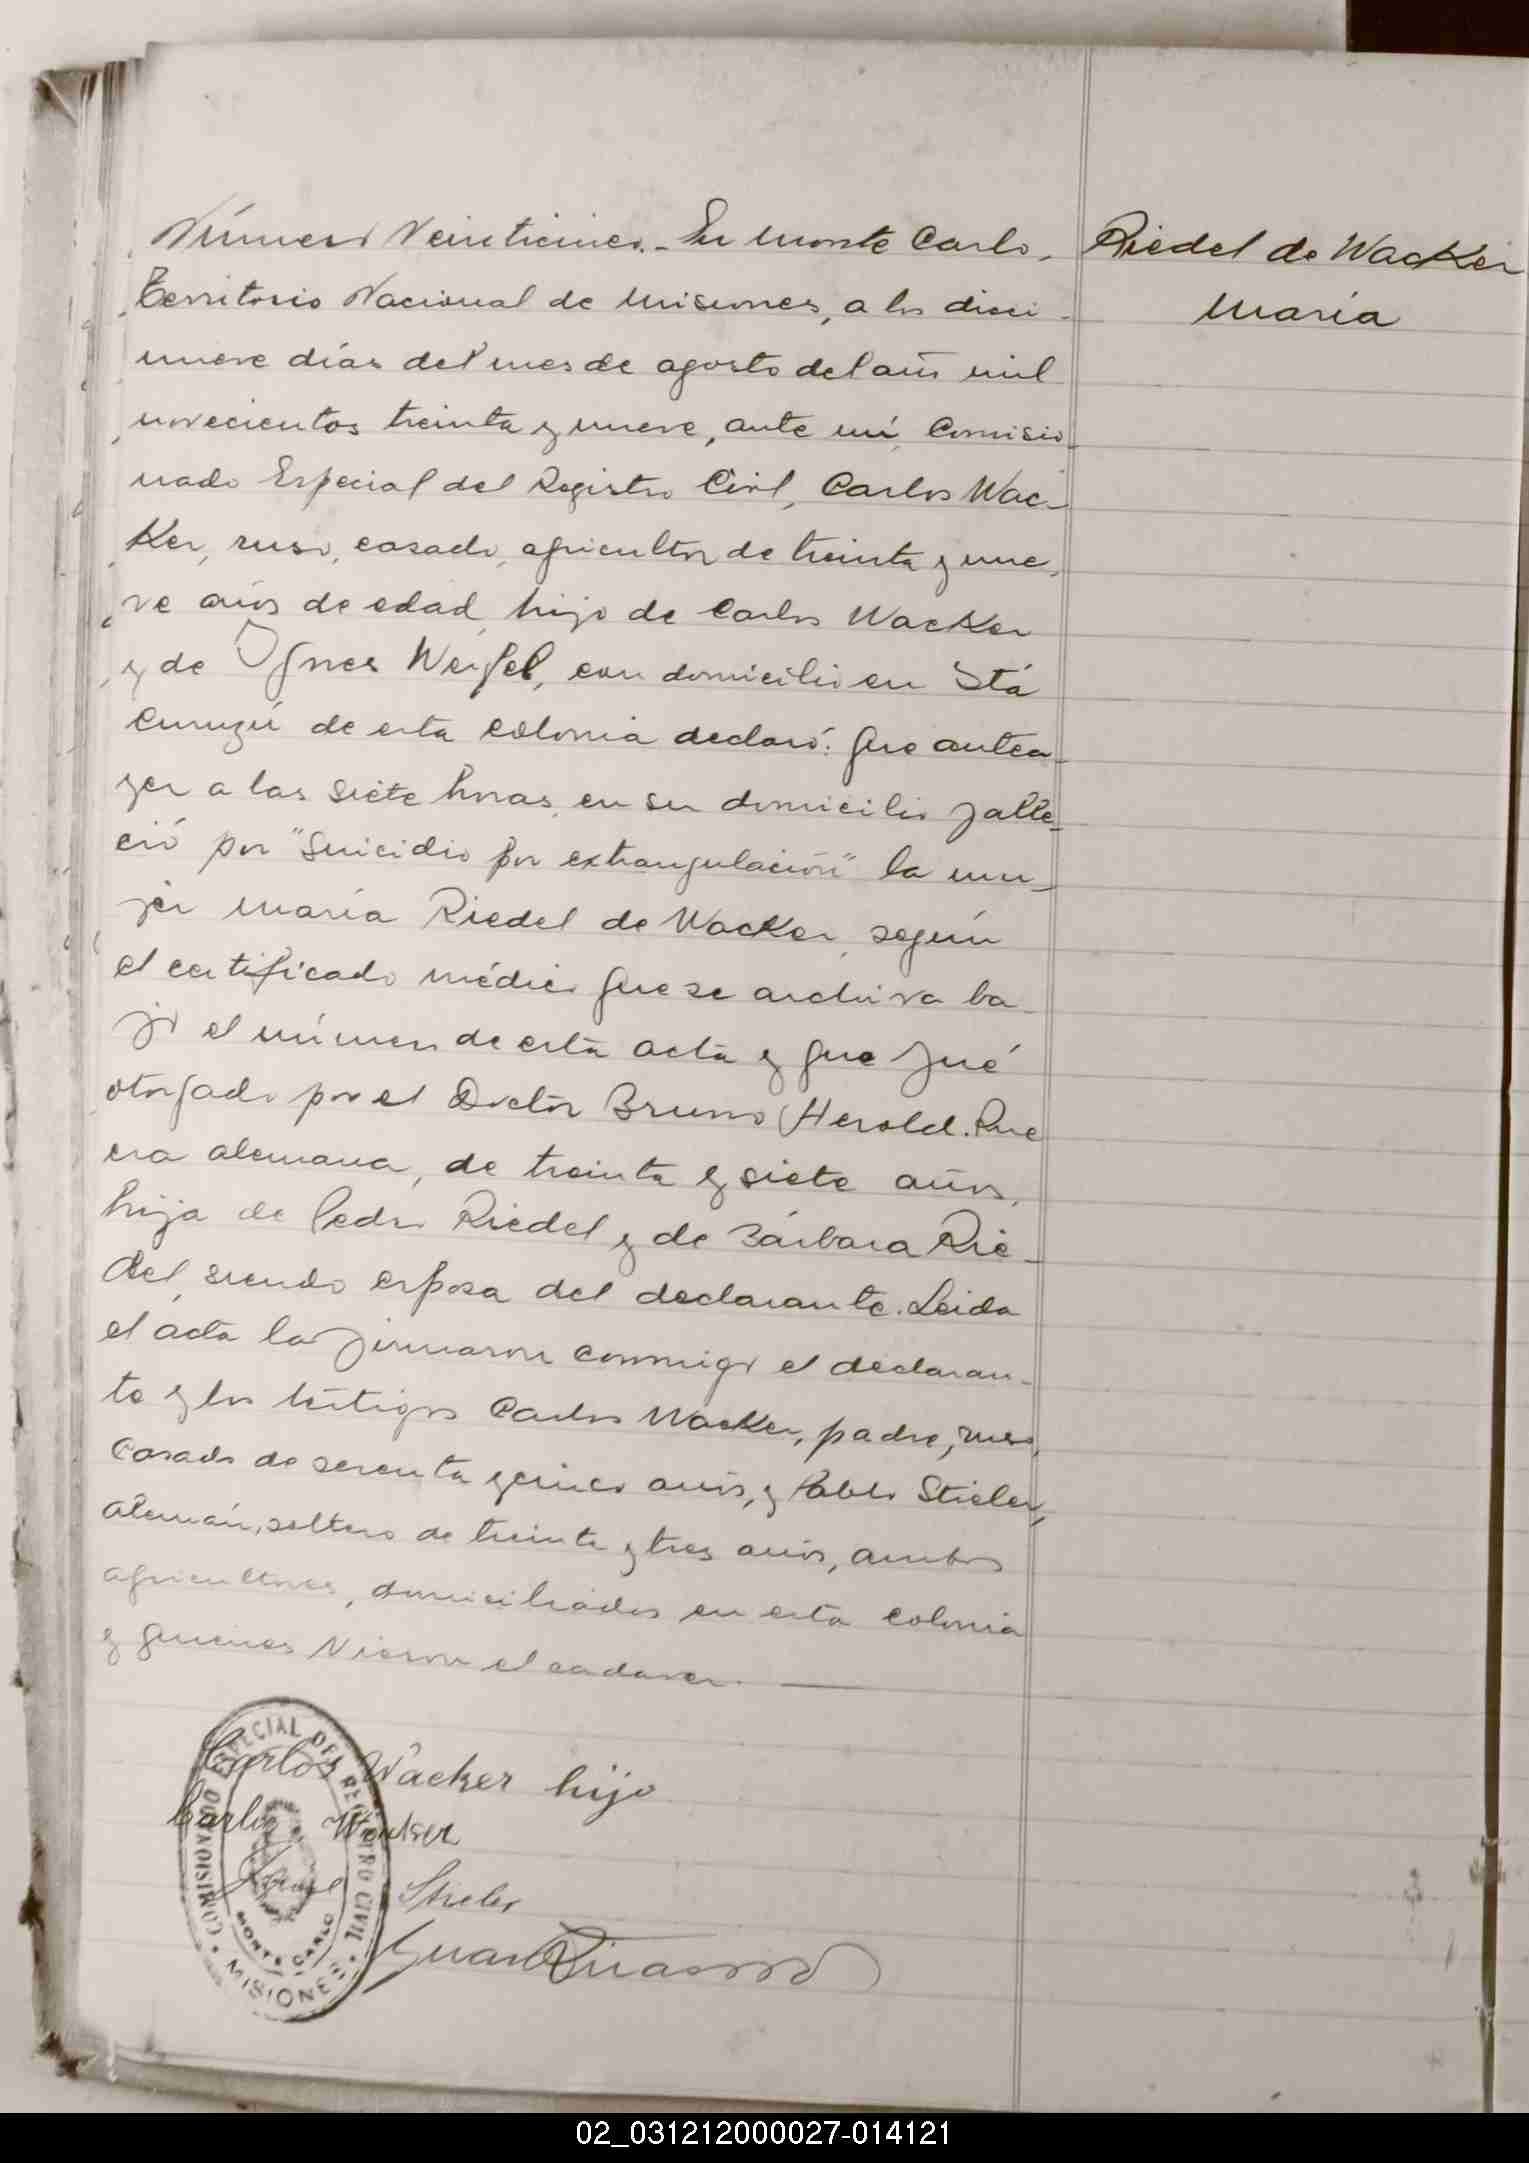 Número Veinticinco.- En Monte Carlo,
Territorio Nacional de Misiones, a los dieci-
nueve días del mes de agosto del año mil
novecientos treinta y nueve, ante mí, Comisio-
nado Especial del Registro Civil, Carlos Wac-
Ker, ruso, casado, agricultor de treinta y nue-
ve años de edad, hijo de Carlos Wacker
y de Ygnes Weigel, con domicilio en Itá
Curuzú de esta colonia declaró: Que antea-
yer a las siete horas, en su domicilio falle-
ció por "Suicidio por extrangulación" la mu-
jer María Riedel de Wacker, según
el certificado médico que se archiva ba-
jo el número de esta acta y que fué
otorgado por el Doctor Bruno Herold. Que
era alemana, de treinta y siete años,
hija de Pedro Riedel y de Bárbara Rie-
del, siendo esposa del declarante. Leida
el acta la firmaron conmigo el declaran-
te y los testigos Carlos Wacker, padre, ruso,
casado de sesenta y cinco años, y Pablo Stieler,
alemán, soltero de treinta y tres años, ambos
agricultores, domiciliados en esta colonia
y quienes vieron el cadaver.
Riedel de Wacker
María
Carlos Wacker hijo
Carlos Wacker
Stieler
Juan
COMISIONADO ESPECIAL DEL REGISTRO CIVIL
MONTE CARLO
MISIONES
02_031212000027-014121